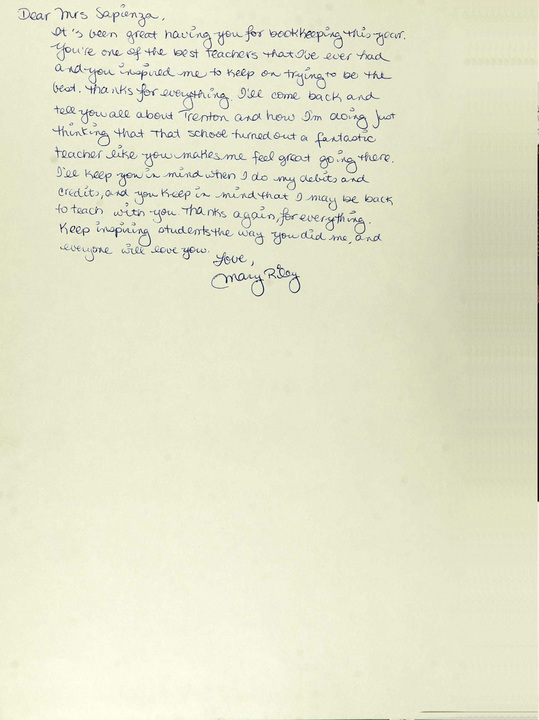 Dear Mrs Sapienza,
It's been great having you for bookkeeping this year.
You're one of the best teachers that I've ever had
and you inspired me to keep on trying to be the
best. Thanks for everything. I'll come back and
tell you all about Trenton and how I'm doing Just
thinking that that school turned out a fantastic
teacher like you makes me feel great going there.
I'll keep you in mind when I do my debits and
credits, and you keep in mind that I may be back
to teach with you. Thanks again, for everything.
Keep inspiring students the way you did me, and
everyone will love you.
Love,
Mary Riley